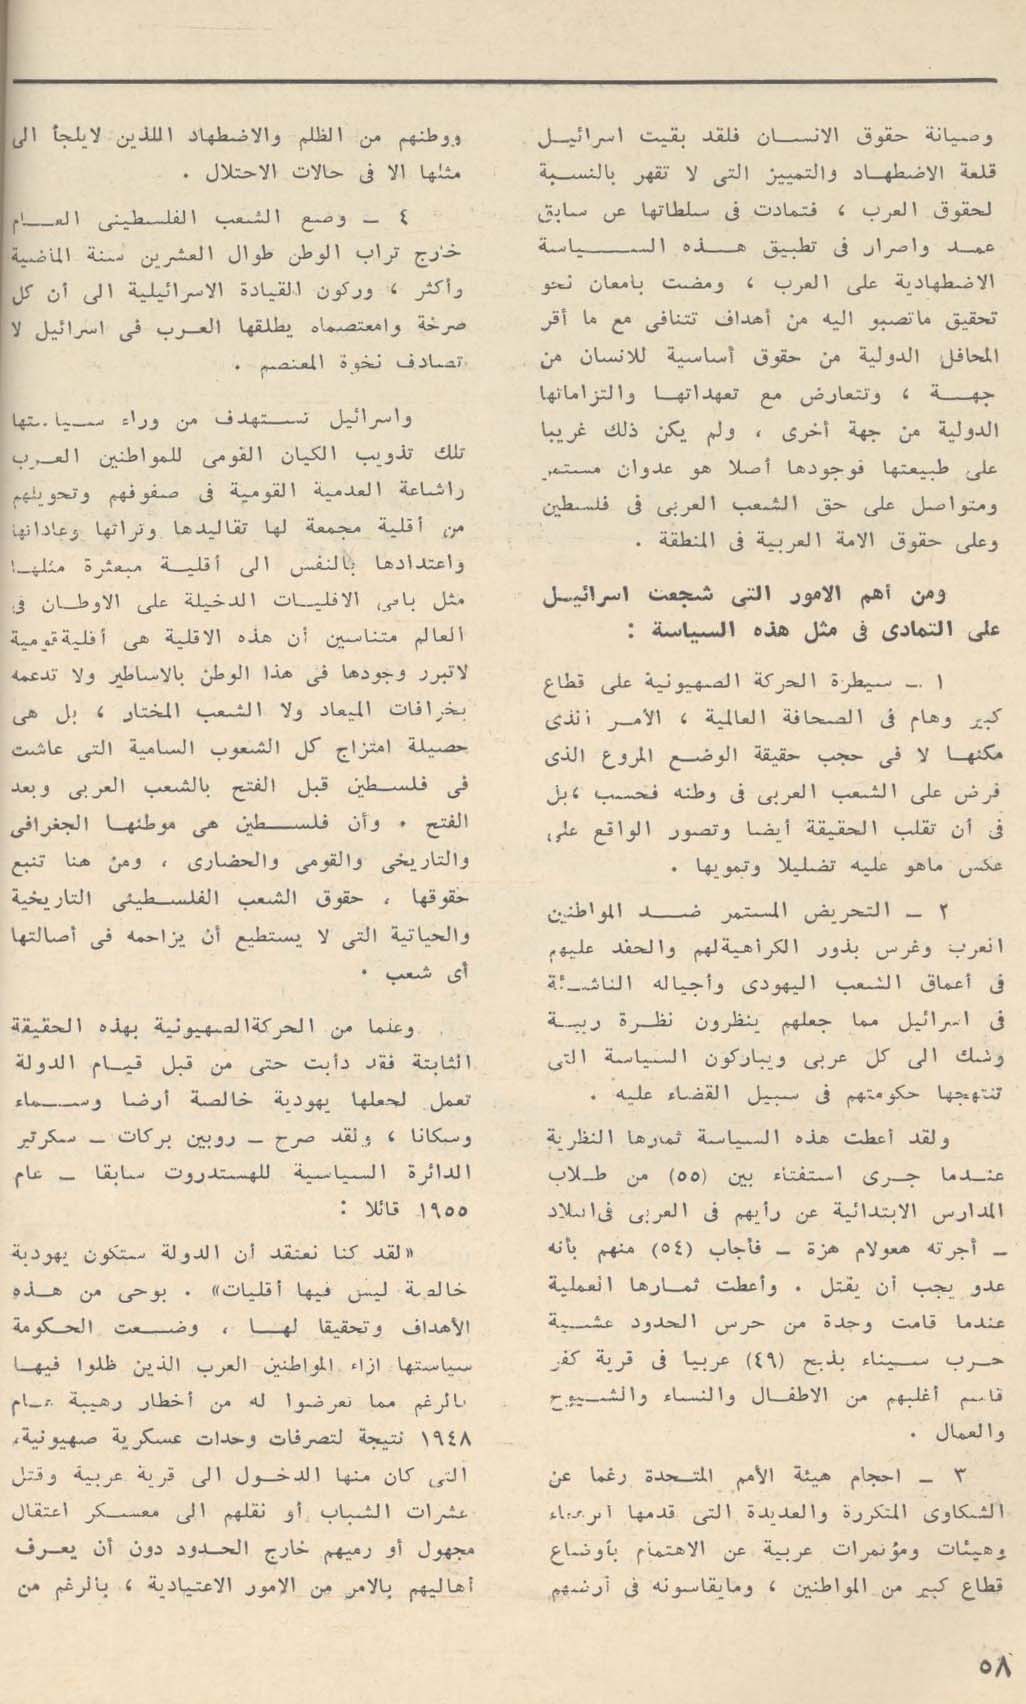 وصيانة حقوق الانسـان فلقد بقيت اسرائيـل
قلعة الاضطهـاد والتمييز التى لا تقهر بالنسـبة
لحقوق العرب ، فتمادت فى سلطاتها عن سابق
عمـد واصرار فى تطبيق هـذه السـياسة
الاضطهادية على العرب ، ومضت بامعان نحو
تحقيق ماتصبو اليه من أهداف تتنافى مع ما أقر
المحافل الدولية من حقوق أساسية للانسان من
جهـة ، وتتعارض مع تعهداتهـا والتزاماتها
الدولية من جهة أخرى ، ولم يكن ذلك غريبا
على طبيعتها فوجودها أصلا هو عدوان مستمر
ومتواصل على حق الشعب العربى فى فلسطين
وعلى حقوق الامة العربية فى المنطقة .
ومن أهم الامور التى شجعت اسرائيـل
على التمادى فى مثل هذه السياسة :
١ ـ سيطرة الحركة الصهيونية على قطاع
كبير وهام فى الصحافة العالمية ، الأمـر الذى
مكنهـا لا فى حجب حقيقة الوضـع المروع الذى
فرض على الشعب العربى فى وطنه فحسب ، بل
فى أن تقلب الحقيقة أيضا وتصور الواقع على
عكس ماهو عليه تضليلا وتمويها .
٢ ـ التحريض المستمر ضـد المواطنين
العرب وغرس بذور الكراهيةلهم والحقد عليهم
فى أعماق الشعب اليهودى وأجياله الناشـئة
فى اسرائيل مما جعلهم ينظرون نظـرة ريبـة
وشك الى كل عربى ويباركون السياسة التى
تنتهجها حكومتهم فى سبيل القضاء عليه .
ولقد أعطت هذه السياسة ثمارها النظرية
عنـدما جـرى استفتاء بين (٥٥) من طـلاب
المدارس الابتدائية عن رأيهم فى العربى فى البلاد
ـ أجرته هعولام هزة ـ فأجاب (٥٤) منهم بأنه
عدو يجب أن يقتل . وأعطت ثمـارها العملية
عندما قامت وحدة من حرس الحدود عشـية
حـرب سـيناء بذبح (٤٩) عربيا فى قرية كفر
قاسم أغلبهم من الاطفـال والنساء والشـيوخ
والعمال .
٣ ـ احجام هيئة الأمم المتـحدة رغما عن
الشكاوى المتكررة والعديدة التى قدمها
وهيئات ومؤتمرات عربية عن الاهتمام بأوضاع
قطاع كبير من المواطنين ، ومايقاسونه فى أرضهم
ووطنهم من الظلم والاضطهاد اللذين لايلجأ الى
مثلها الا فى حالات الاحتلال .
٤ ـ وضع الشعب الفلسطينى العـام
خارج تراب الوطن طوال العشرين سنة الماضية
وأكثر ، وركون القيادة الاسرائيلية الى أن كل
صرخة وامعتصماه يطلقها العـرب فى اسرائيل لا
تصادف نخوة المعتصم .
واسرائيل تسـتهدف من وراء سـياستها
تلك تذويب الكيان القومى للمواطنين العـرب
واشاعة العدمية القومية فى صفوفهم وتحويلهم
من أقلية مجمعة لها تقاليدها وتراثها وعاداتها
واعتدادها بالنفس الى أقليـة مبعثرة مثلهـا
مثل باقى الاقليـات الدخيلة على الأوطـان فى
العالم متناسين أن هذه الاقلية هى أقلية قومية
لاتبرر وجودها فى هذا الوطن بالاساطير ولا تدعمه
بخرافات الميعاد ولا الشعب المختار ، بل هى
حصيلة امتزاج كل الشعوب السامية التى عاشت
فى فلسـطين قبل الفتح بالشعب العربى وبعد
الفتح . وأن فلسـطين هى موطنهـا الجغرافى
والتاريخى والقومى والحضارى ، ومن هنا تنبع
حقوقها ، حقوق الشعب الفلسـطينى التاريخية
والحياتية التى لا يستطيع أن يزاحمه فى أصالتها
أى شعب .
وعلما من الحركةالصهيونية بهذه الحقيقة
الثابتة فقد دأبت حتى من قبل قيـام الدولة
تعمل لجعلها يهودية خالصة أرضا وسـماء
وسكانا ، ولقد صرح ـ روبين بركات ـ سكرتير
الدائرة السياسية للهستدروت سابقا ـ عام
١٩٥٥ قائلا :
«لقد كنا نعتقد أن الدولة ستكون يهودية
خالصة ليس فيها أقليات» . بوحى من هـذه
الأهداف وتحقيقا لهـا ، وضـعت الحـكومة
سياستها ازاء المواطنين العرب الذين ظلوا فيهـا
بالرغم مما تعرضوا له من أخطار رهيبة عـام
١٩٤٨ نتيجة لتصرفات وحدات عسكرية صهيونية،
التى كان منها الدخـول الى قرية عربية وقتل
عشرات الشباب أو نقلهم الى معسـكر اعتقال
مجهول أو رميهم خارج الحـدود دون أن يعـرف
أهاليهم بالامر من الامور الاعتيادية ، بالرغم من
٥٨